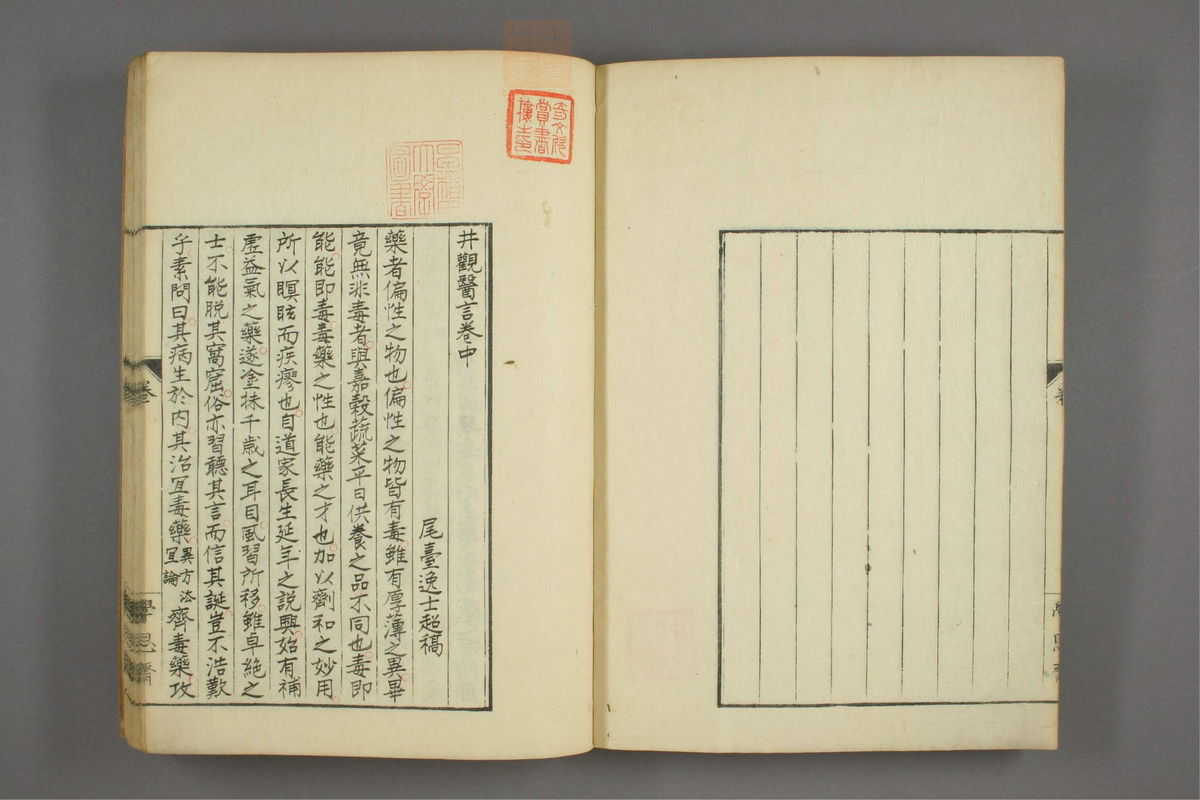 井觀醫言卷中
尾臺逸士超稿
藥者偏性之物也偏性之物皆有毒雖有厚薄之異畢
竟無非毒者與嘉穀蔬菜平日供養之品不同也毒即
能能即毒毒藥之性也能藥之才也加以劑和之妙用
所以瞑眩而疾瘳也自道家長生延年之說興始有補
虛益氣之藥遂塗抹千歲之耳目風習所移雖卓絕之
士不能脫其窩窟俗亦習聽其言而信其誕豈不浩歎
乎素問曰其病生於內其治宜毒藥異方法宜論齊毒藥攻
卷
學思齋
奇文欣賞書樓
圖書